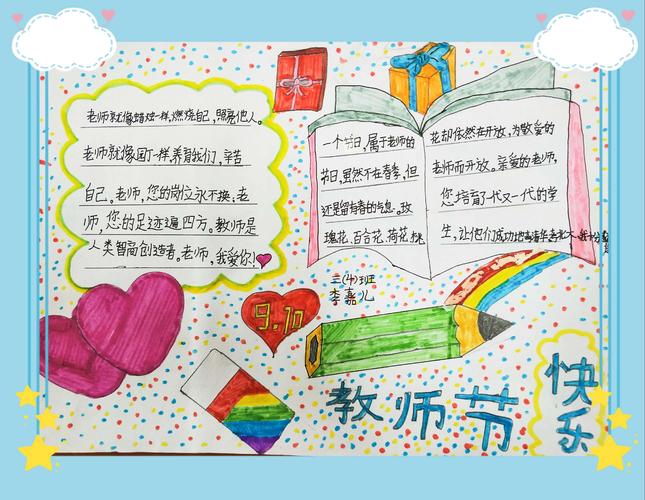 老师就像蜡烛一样,燃烧自己,照亮他人。
老师就像园丁一样养育我们,辛苦
自己。老师,您的岗位永不换,老
师,您的足迹遍四方。教师是
人类智高创造者。老师,我爱你!
一个节日,属于老师的
节日,虽然不在春季,但
还是留有春的气息。玫
瑰花、百合花、荷花、桃
花却依然在开放,为敬爱的
老师而开放。亲爱的老师,
您培育了代又一代的学
生,让他们成功地
三(4)班
李嘉儿
9.10
教师节
快乐